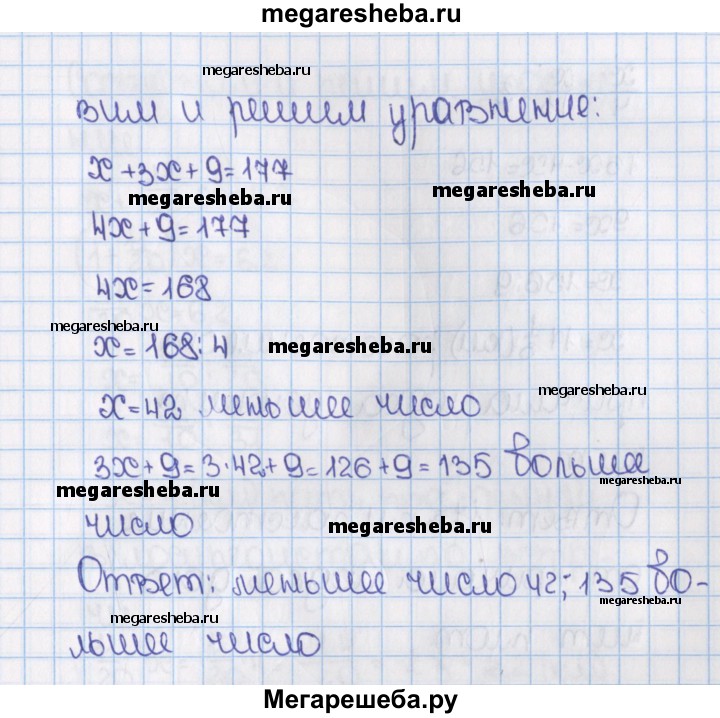 megaresheba.ru
megaresheba.ru
вим и решим уравнение:
x+3x+9=177
megaresheba.ru
megaresheba.ru
4x+9=177
4x=168
megaresheba.ru
x=168:4
megaresheba.ru
megaresheba.ru
x=42 меньшее число
3x+9=3·42+9=126+9=135 большее
megaresheba.ru
megaresheba.ru
число
megaresheba.ru
Ответ: меньшее число 42; 135 бо-
megaresheba.ru
megaresheba.ru
льшее число
Мегарешеба.ру